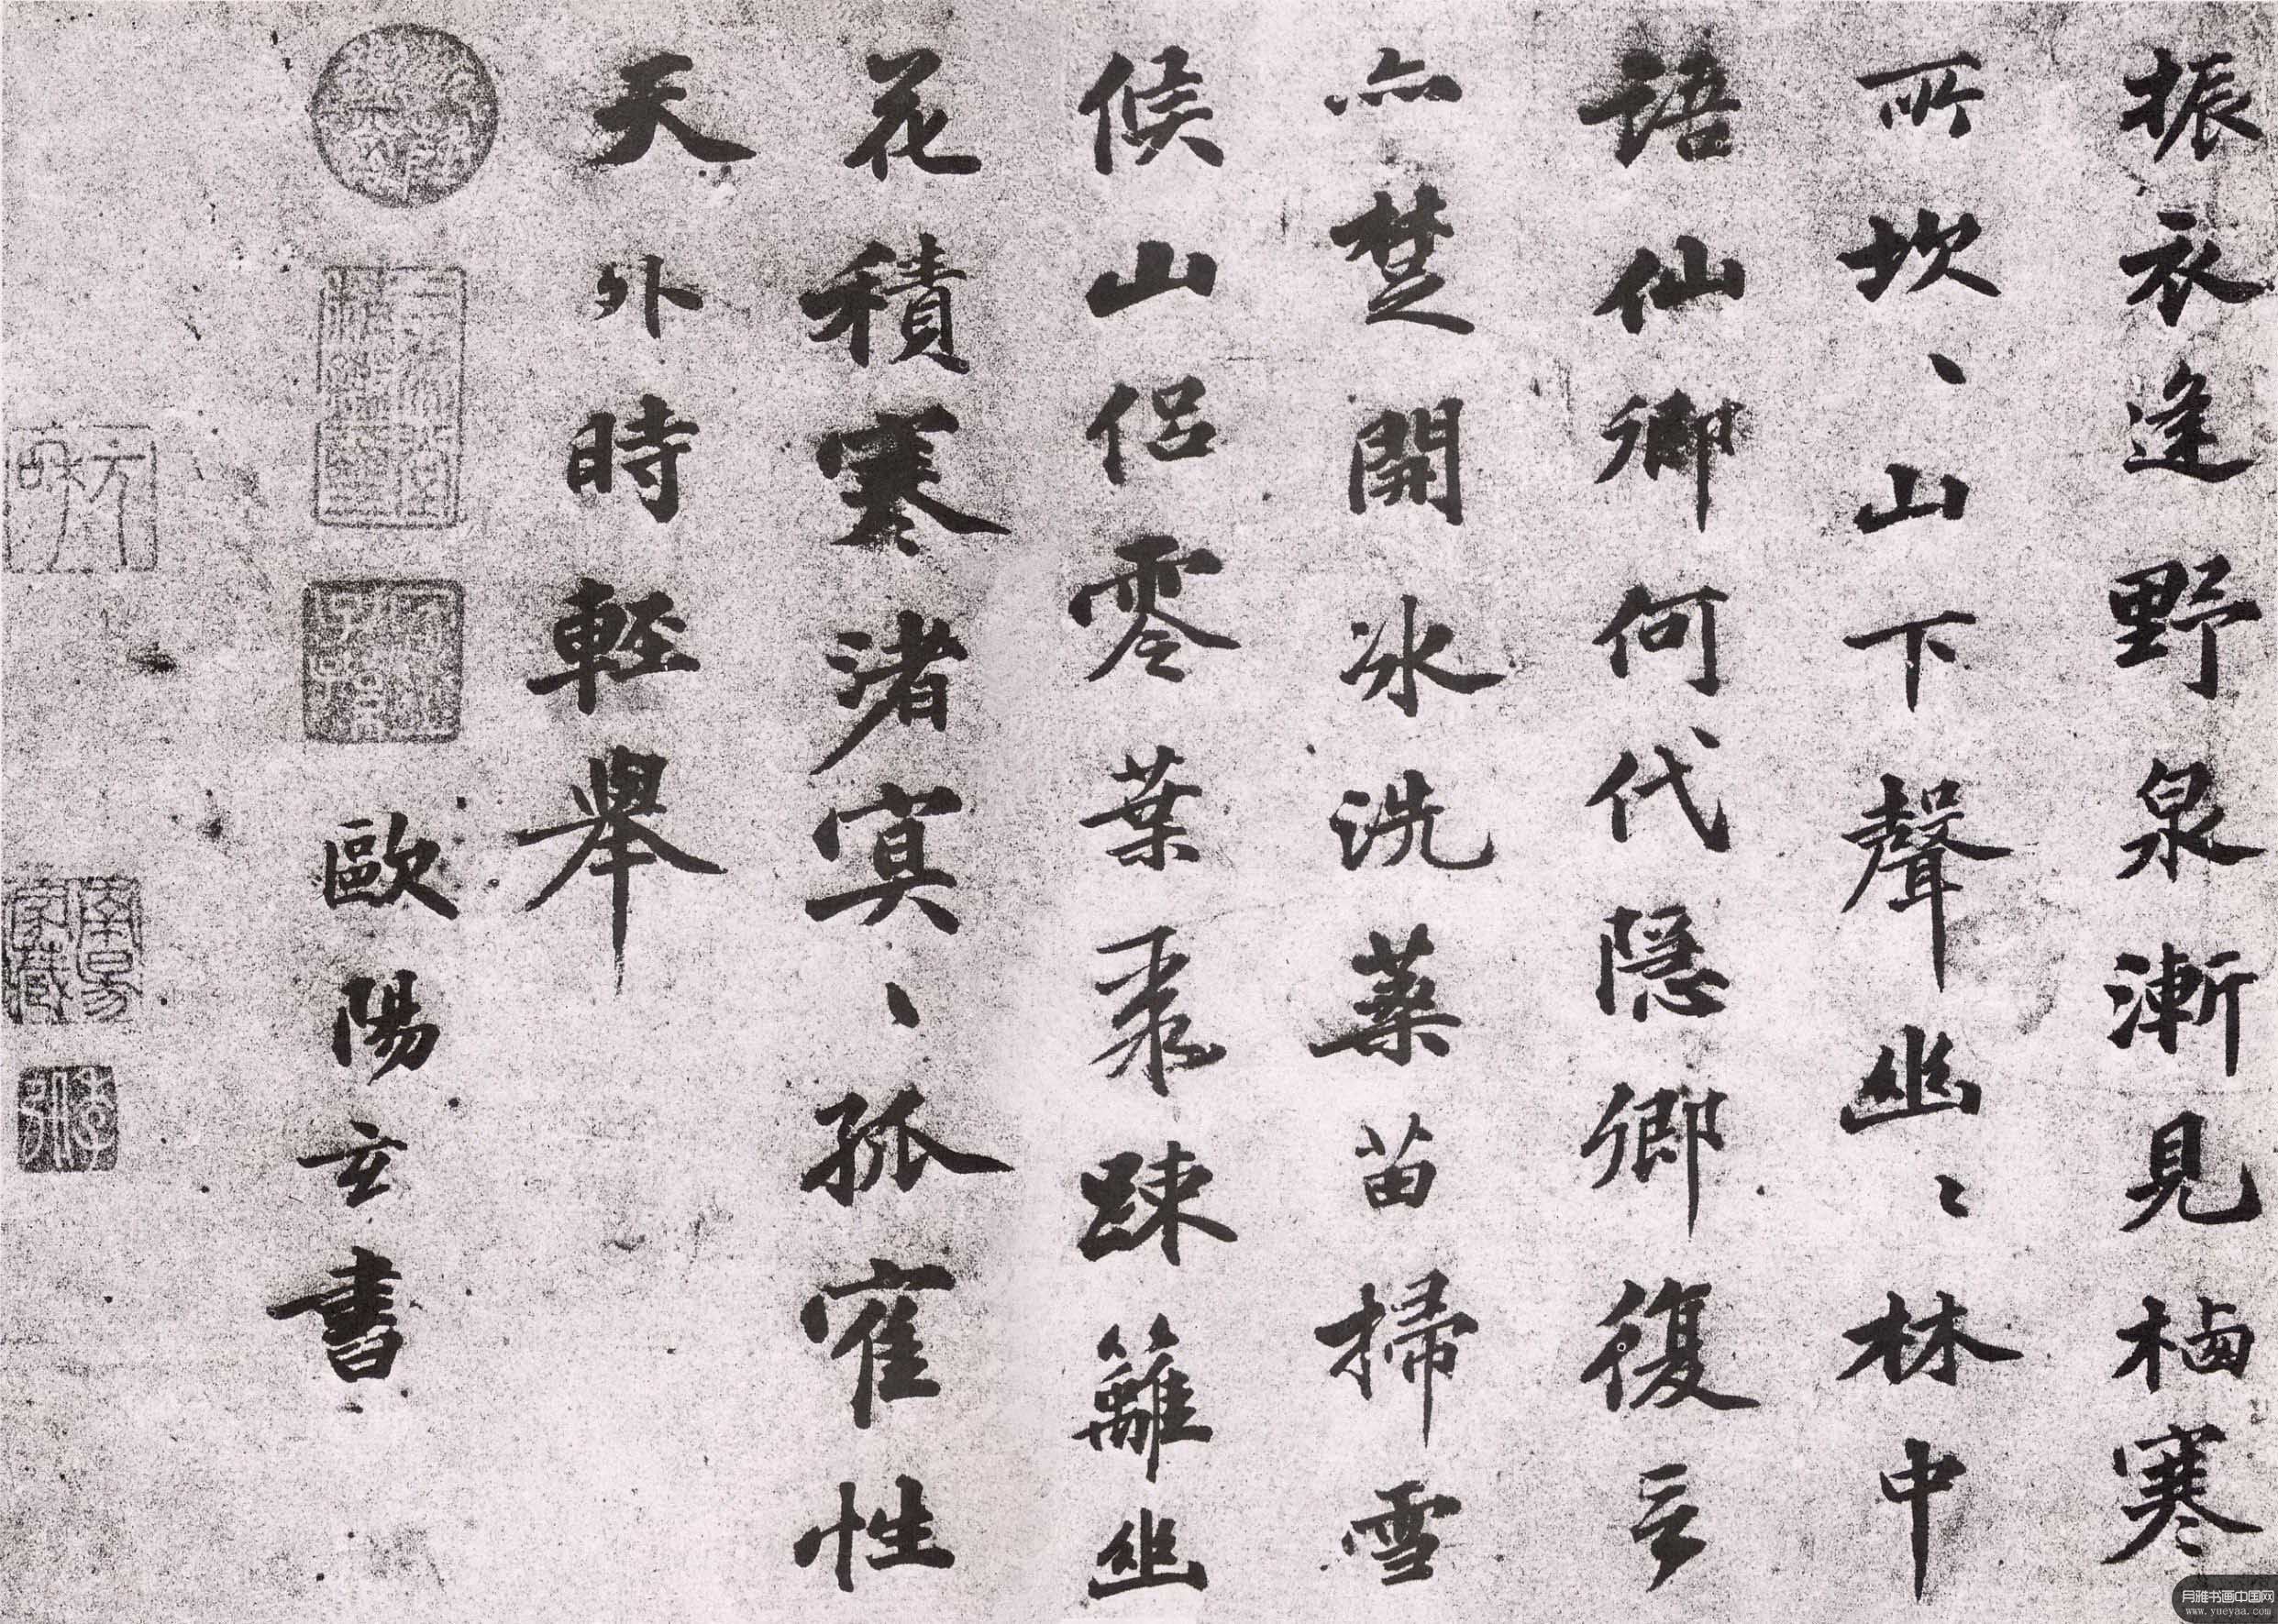 振衣逢野泉漸見栖寒
所坎、山下聲幽、林中
語仙鄉何代隱鄉復言
亦楚開冰洗藥苗掃雪
候山侶零葉棗踈籬幽
花積寒渚寞、孤隺性
天外時輕舉
歐陽玄書
月雅书画中国网
www.yueyaa.com